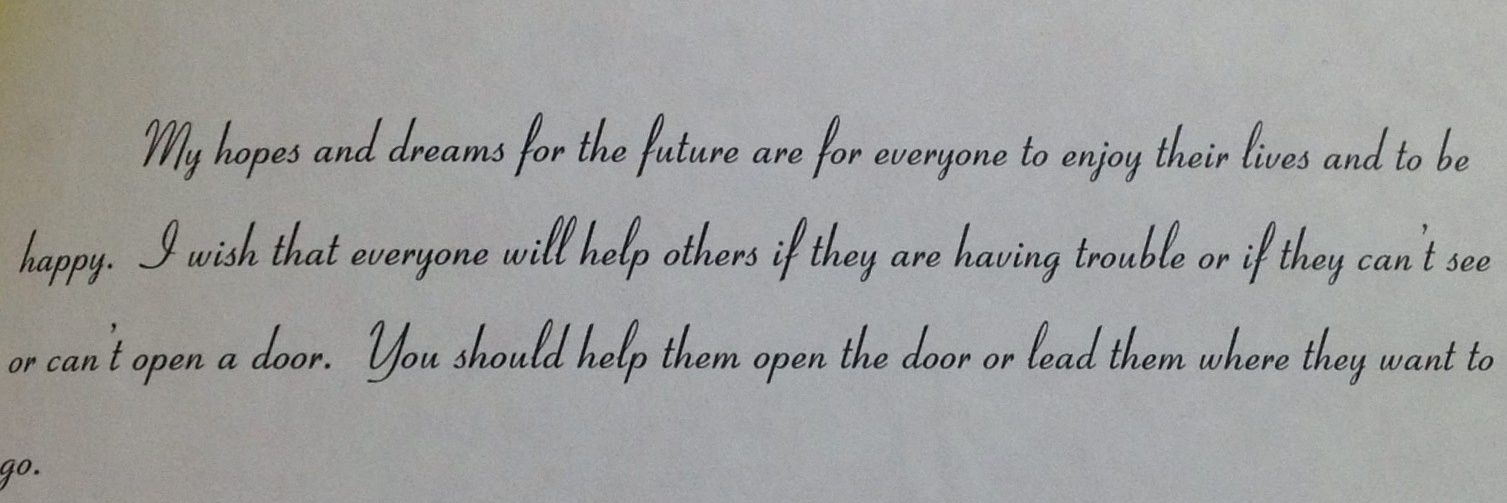 My hopes and dreams for the future are for everyone to enjoy their lives and to be
happy. I wish that everyone will help others if they are having trouble or if they can't see
or can't open a door. You should help them open the door or lead them where they want to
go.